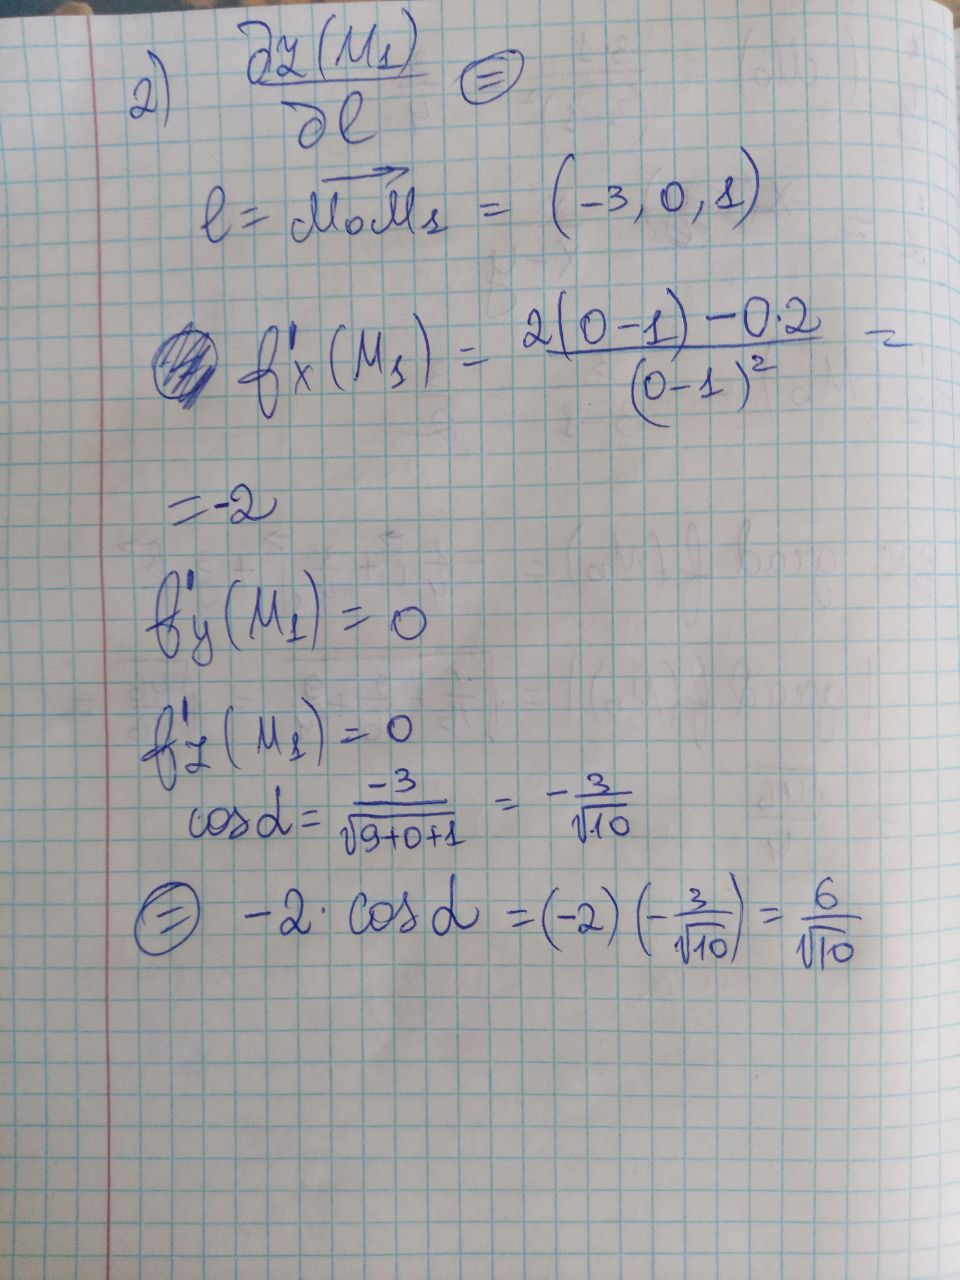 2) ∂z(M₁)/∂l ⊜
l = M₀M₁ = (-3, 0, 1)
f'x(M₁) = 2(0-1) - 0·2 / (0-1)² =
= -2
f'y(M₁) = 0
f'z(M₁) = 0
cos α = -3/√9+0+1 = -3/√10
⊜ -2 · cos α = (-2)(-3/√10) = 6/√10